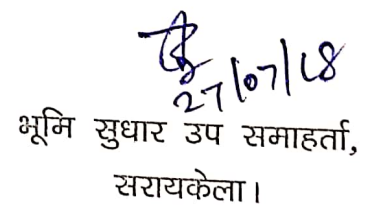 27/07/18
भूमि सुधार उप समाहर्ता,
सरायकेला।